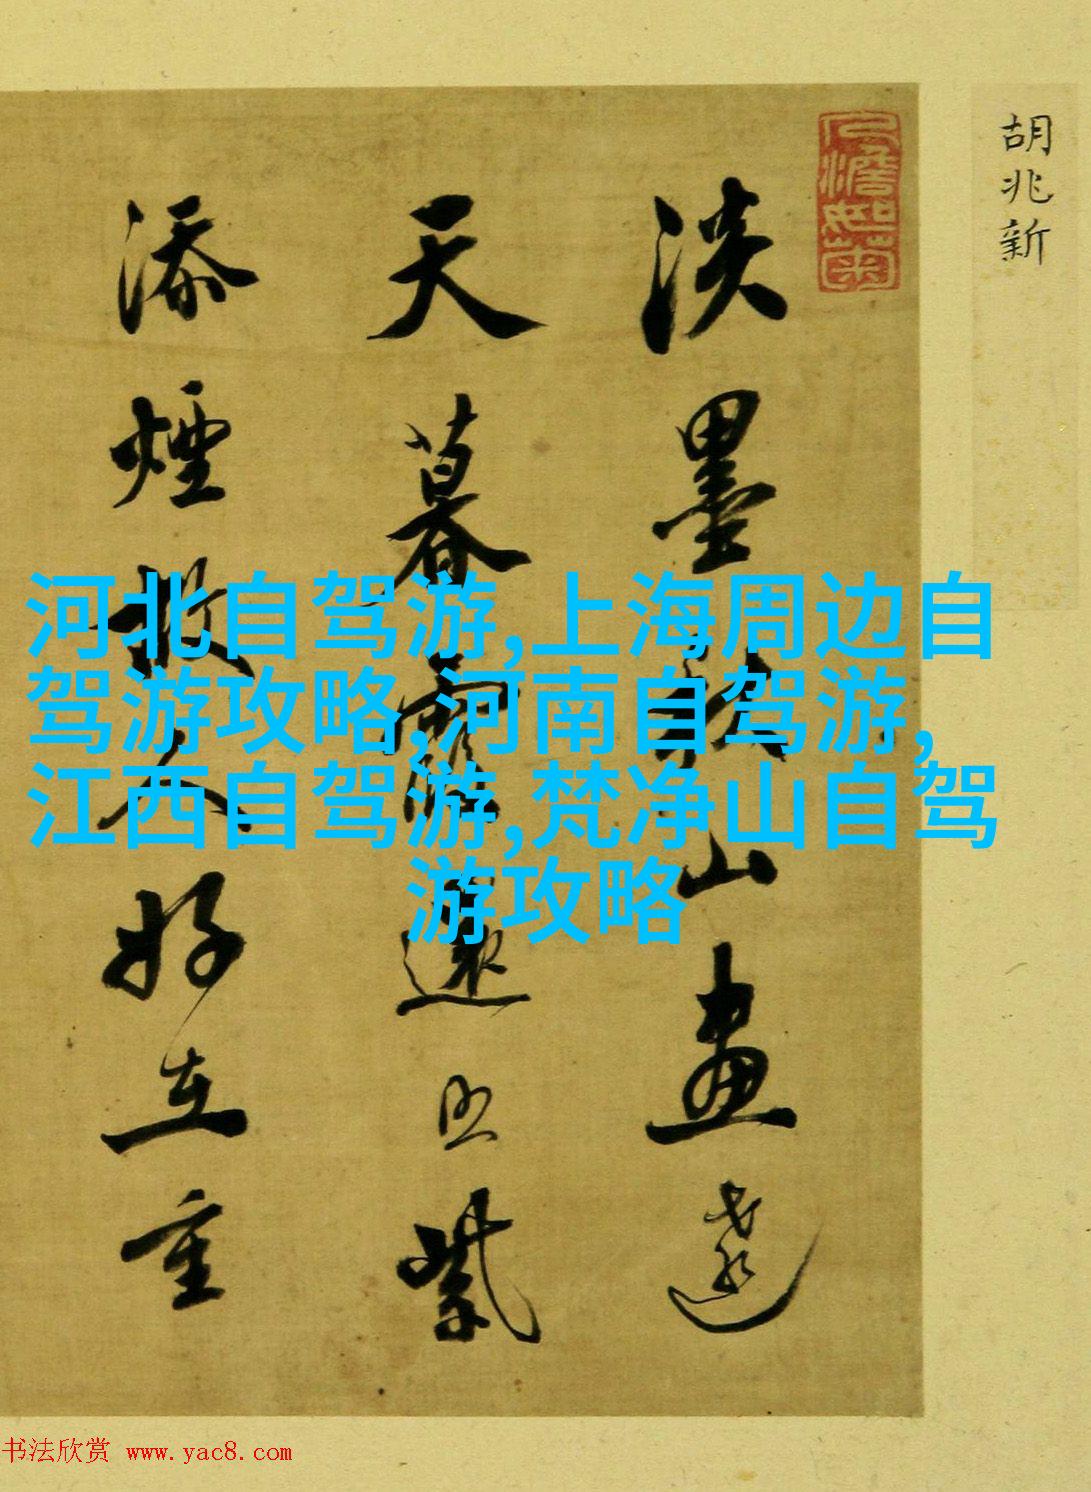 胡兆新
人澹如菊
淡墨秋山畫遠
天暮霞還照紫
添煙故人好在重
河北自驾游,上海周边自
驾游攻略,河南自驾游,
江西自驾游,梵净山自驾
游攻略
书法欣赏 www.yac8.com